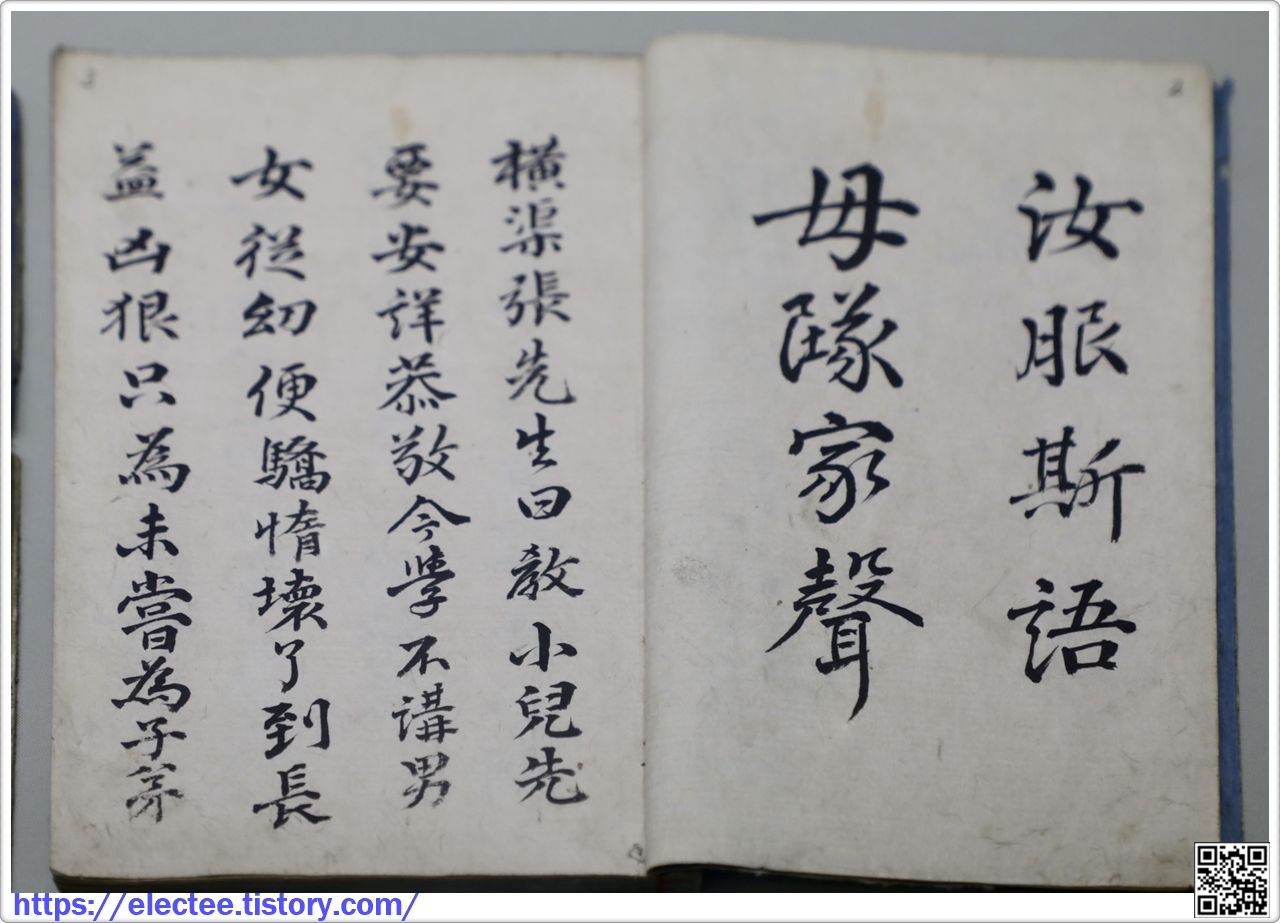 汝服斯語
毋隊家聲
橫渠張先生曰教小兒先
要安詳恭敬今學不講男
女從幼便驕惰壞了到長
益凶狠只為未嘗為子弟
3
2
https://electee.tistory.com/